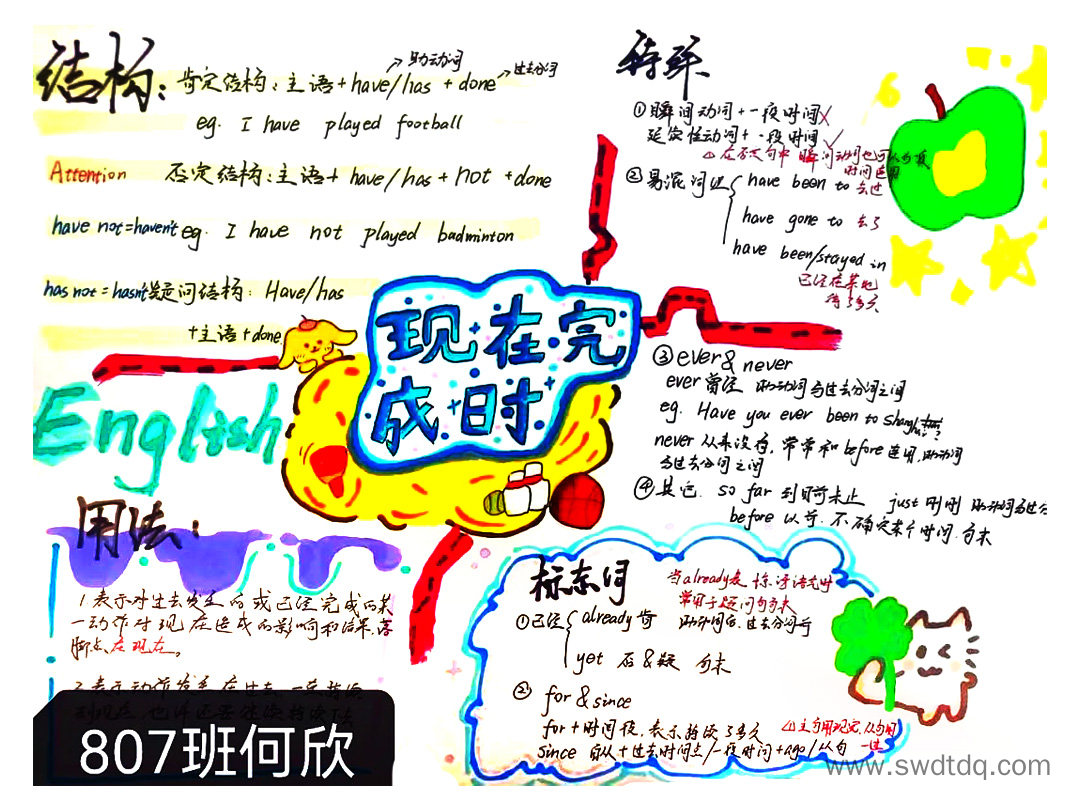 结构：
肯定结构：主语+have/has +done
→助动词
→过去分词
eg. I have played football
Attention
否定结构：主语+ have/has + not +done
have not=haven't
eg. I have not played badminton
has not = hasn't
疑问结构：Have/has
+主语+done
特殊
①瞬间动词+一段时间×
延续性动词+一段时间✓
②易混词组
have been to 去过
have gone to 去了
have been/stayed in
已经在某地
待了多久
现在完
成时
English
③ever & never
ever 曾经 助动词与过去分词之间
eg. Have you ever been to
never 从来没有，常常和before连用，助动词
与过去分词之间
④其它. so far 到目前未止 just 刚刚 助动词与过
before 以前. 不确定某个时间. 句末
用法：
1.表示对过去发生的或已经完成的某
一动作对现在造成的影响和结果，落
脚点在现在。
标志词
当already表惊讶语气时
常用于疑问句句末
助动词后，过去分词前
①已经
already 肯
yet 否&疑 句末
② for & since
for+时间段，表示持续了多久
since 自从+过去时间点/一段时间+ago/从句
主句用现完，从句用
一过
807班何欣
www.swdtdq.com